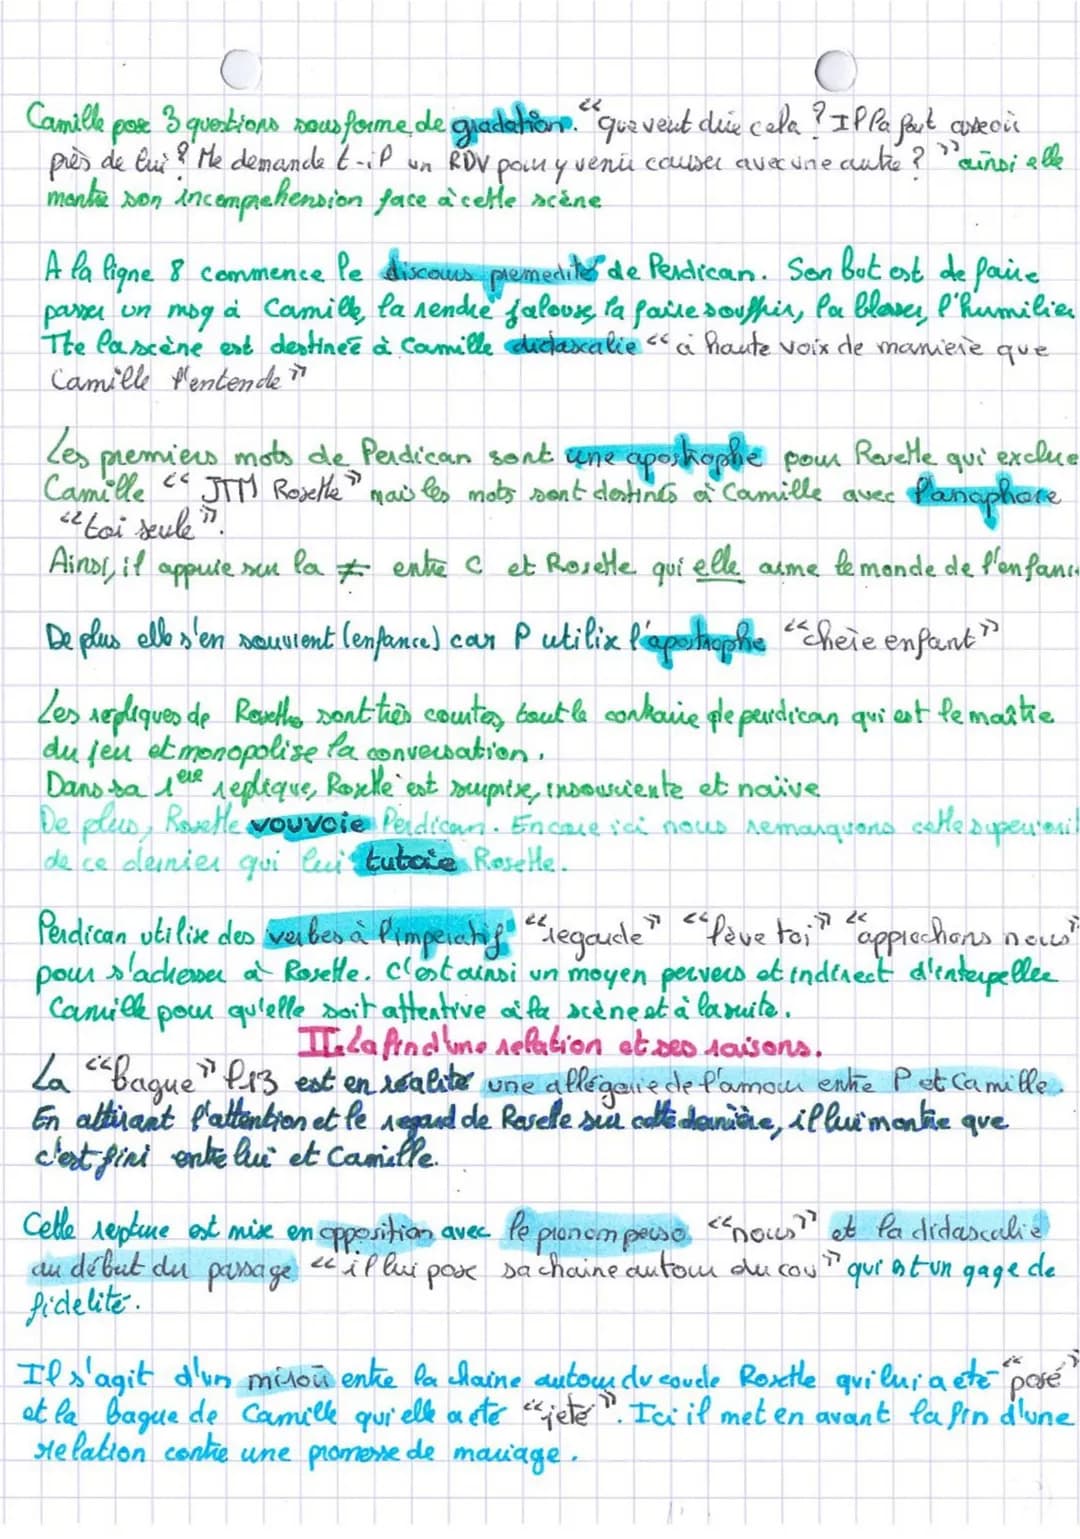 Camille pose 3 questions sous forme de gradation. "que veut dire cela ? Il la fait asseoir
près de lui ? Me demande t-il un RDV pour y venir causer avec une autre ?" ainsi elle
montre son incomprehension face à cette scène
A la ligne 8 commence le discours premedité de Perdican. Son but est de faire
passer un msg à Camille, la rendre jalouse, la faire souffrir, la blesser, l'humilier
Tte la scène est destineé à Camille didascalie "à haute voix de maniere que
Camille l'entende"
Les premiers mots de Perdican sont une apostrophe pour Rosette qui exclue
Camille "JTM Rosette" mais les mots sont destinés à Camille avec l'anaphore
"toi seule".
Ainsi, il appuie sur la ≠ entre C et Rosette qui elle aime le monde de l'enfance
De plus elle s'en souvient (enfance) car P utilise l'apostrophe "chère enfant"
Les repliques de Rosette sont très courtes, tout le contraire de perdican qui est le maître
du jeu et monopolise la conversation.
Dans sa 1ere replique, Rosette est surprise, insouciente et naïve
De plus, Rosette vouvoie Perdican. Encore ici nous remarquons cette superiorité
de ce dernier qui lui tutoie Rosette.
Perdican utilise des verbes à l'imperatif "regarde" "lève toi" "approchons nous"
pour s'adresser à Rosette. C'est ainsi un moyen pervers et indirect d'interpeller
Camille pour qu'elle soit attentive à la scène et à la suite.
II. La fin d'une relation et ses raisons.
La "bague" l.13 est en réalité une allégorie de l'amour entre P et Camille.
En attirant l'attention et le regard de Rosette sur cette dernière, il lui montre que
c'est fini entre lui et Camille.
Cette rupture est mise en opposition avec le pronom perso "nous" et la didascalie
au début du passage "il lui pose sa chaine autour du cou" qui est un gage de
fidelité.
Il s'agit d'un miroir entre la chaine autour du cou de Rosette qui lui a été "posé"
et la bague de Camille qui elle a été "jeté". Ici il met en avant la fin d'une
relation contre une promesse de mariage.